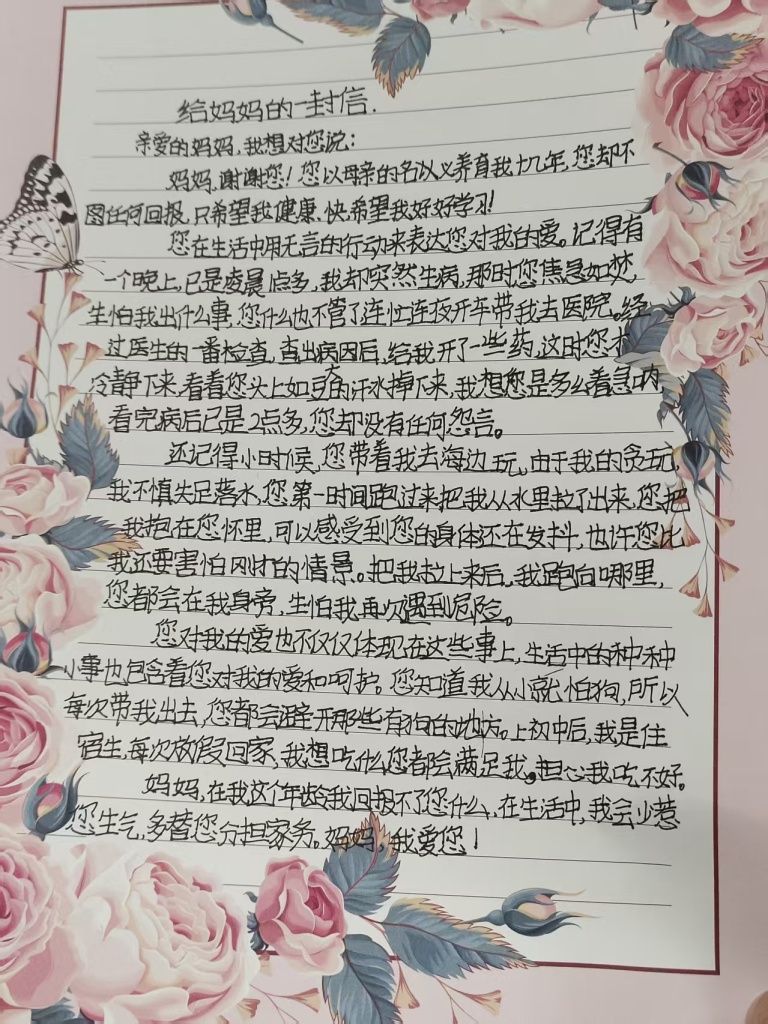 给妈妈的一封信.
亲爱的妈妈,我想对您说:
妈妈,谢谢您!您以母亲的名以义养育我十几年,您却不
图任何回报,只希望我健康、快,希望我好好学习!
您在生活中用无言的行动来表达您对我的爱。记得有
一个晚上,已是凌晨1点多,我却突然生病,那时您焦急如焚,
生怕我出什么事,您什么也不管了连忙连夜开车带我去医院。经
过医生的一番检查,查出病因后,给我开了一些药,这时您才
冷静下来,看着您头上如豆大的汗水掉下来,我想您是多么着急呐,
看完病后已是2点多,您却没有任何怨言。
还记得小时候,您带着我去海边玩,由于我的贪玩,
我不慎失足落水,您第一时间跑过来把我从水里拉了出来,您把
我抱在您怀里,可以感受到您的身体还在发抖,也许您比
我还要害怕刚才的情景。把我拉上来后,我跑向哪里,
您都会在我身旁,生怕我再次遇到危险。
您对我的爱也不仅仅体现在这些事上,生活中的种种
小事也包含着您对我的爱和呵护。您知道我从小就怕狗,所以
每次带我出去,您都会避开那些有狗的地方。上初中后,我是住
宿生,每次放假回家,我想吃什么您都会满足我。担心我吃不好。
妈妈,在我这个年龄我回报不了您什么,在生活中,我会少惹
您生气,多替您分担家务。妈妈,我爱您!